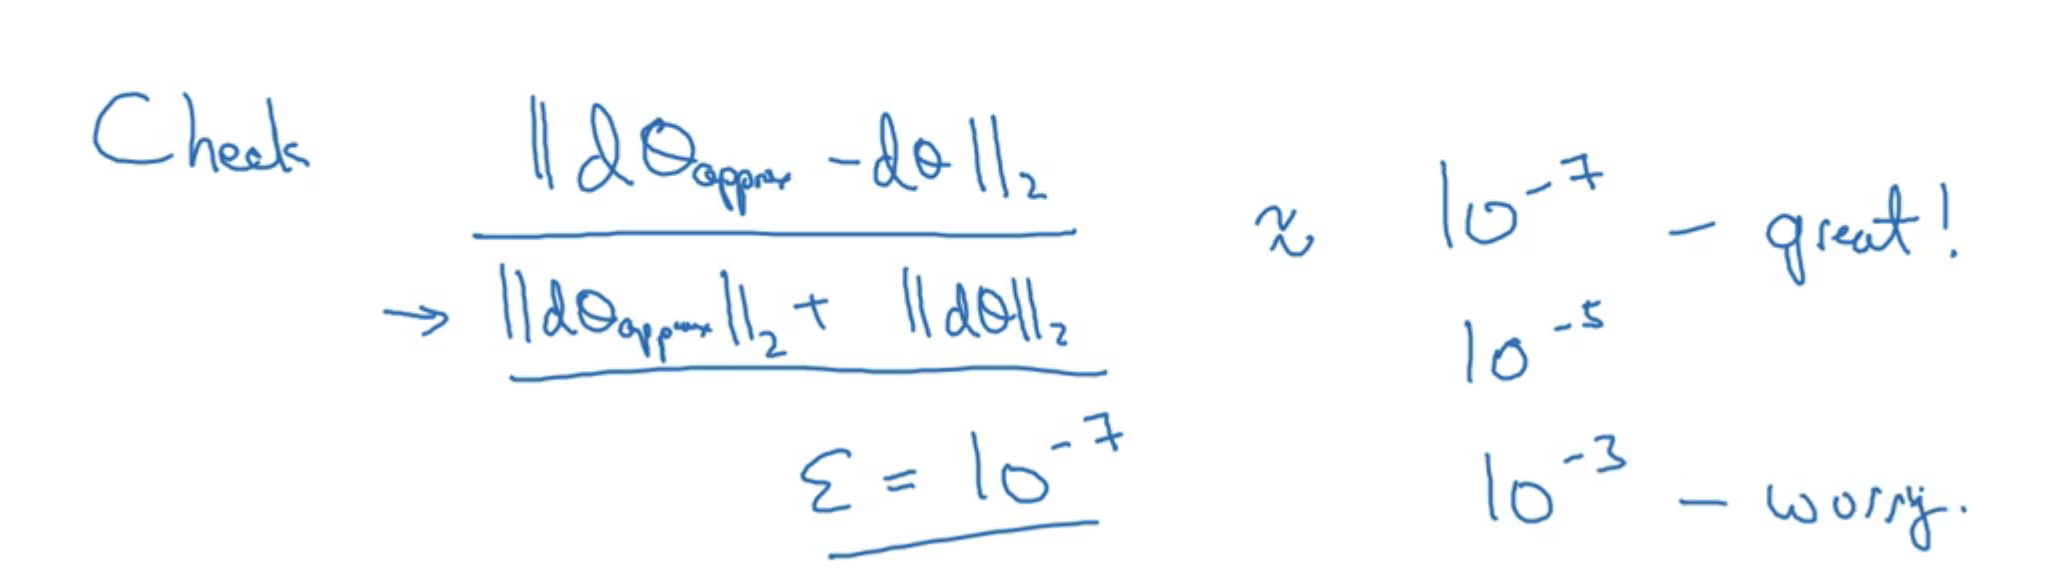 Check ||dθapprox - dθ||₂
→ ||dθapprox||₂ + ||dθ||₂
≈ 10⁻⁷ - great!
10⁻⁵
10⁻³ - worry.
ε = 10⁻⁷